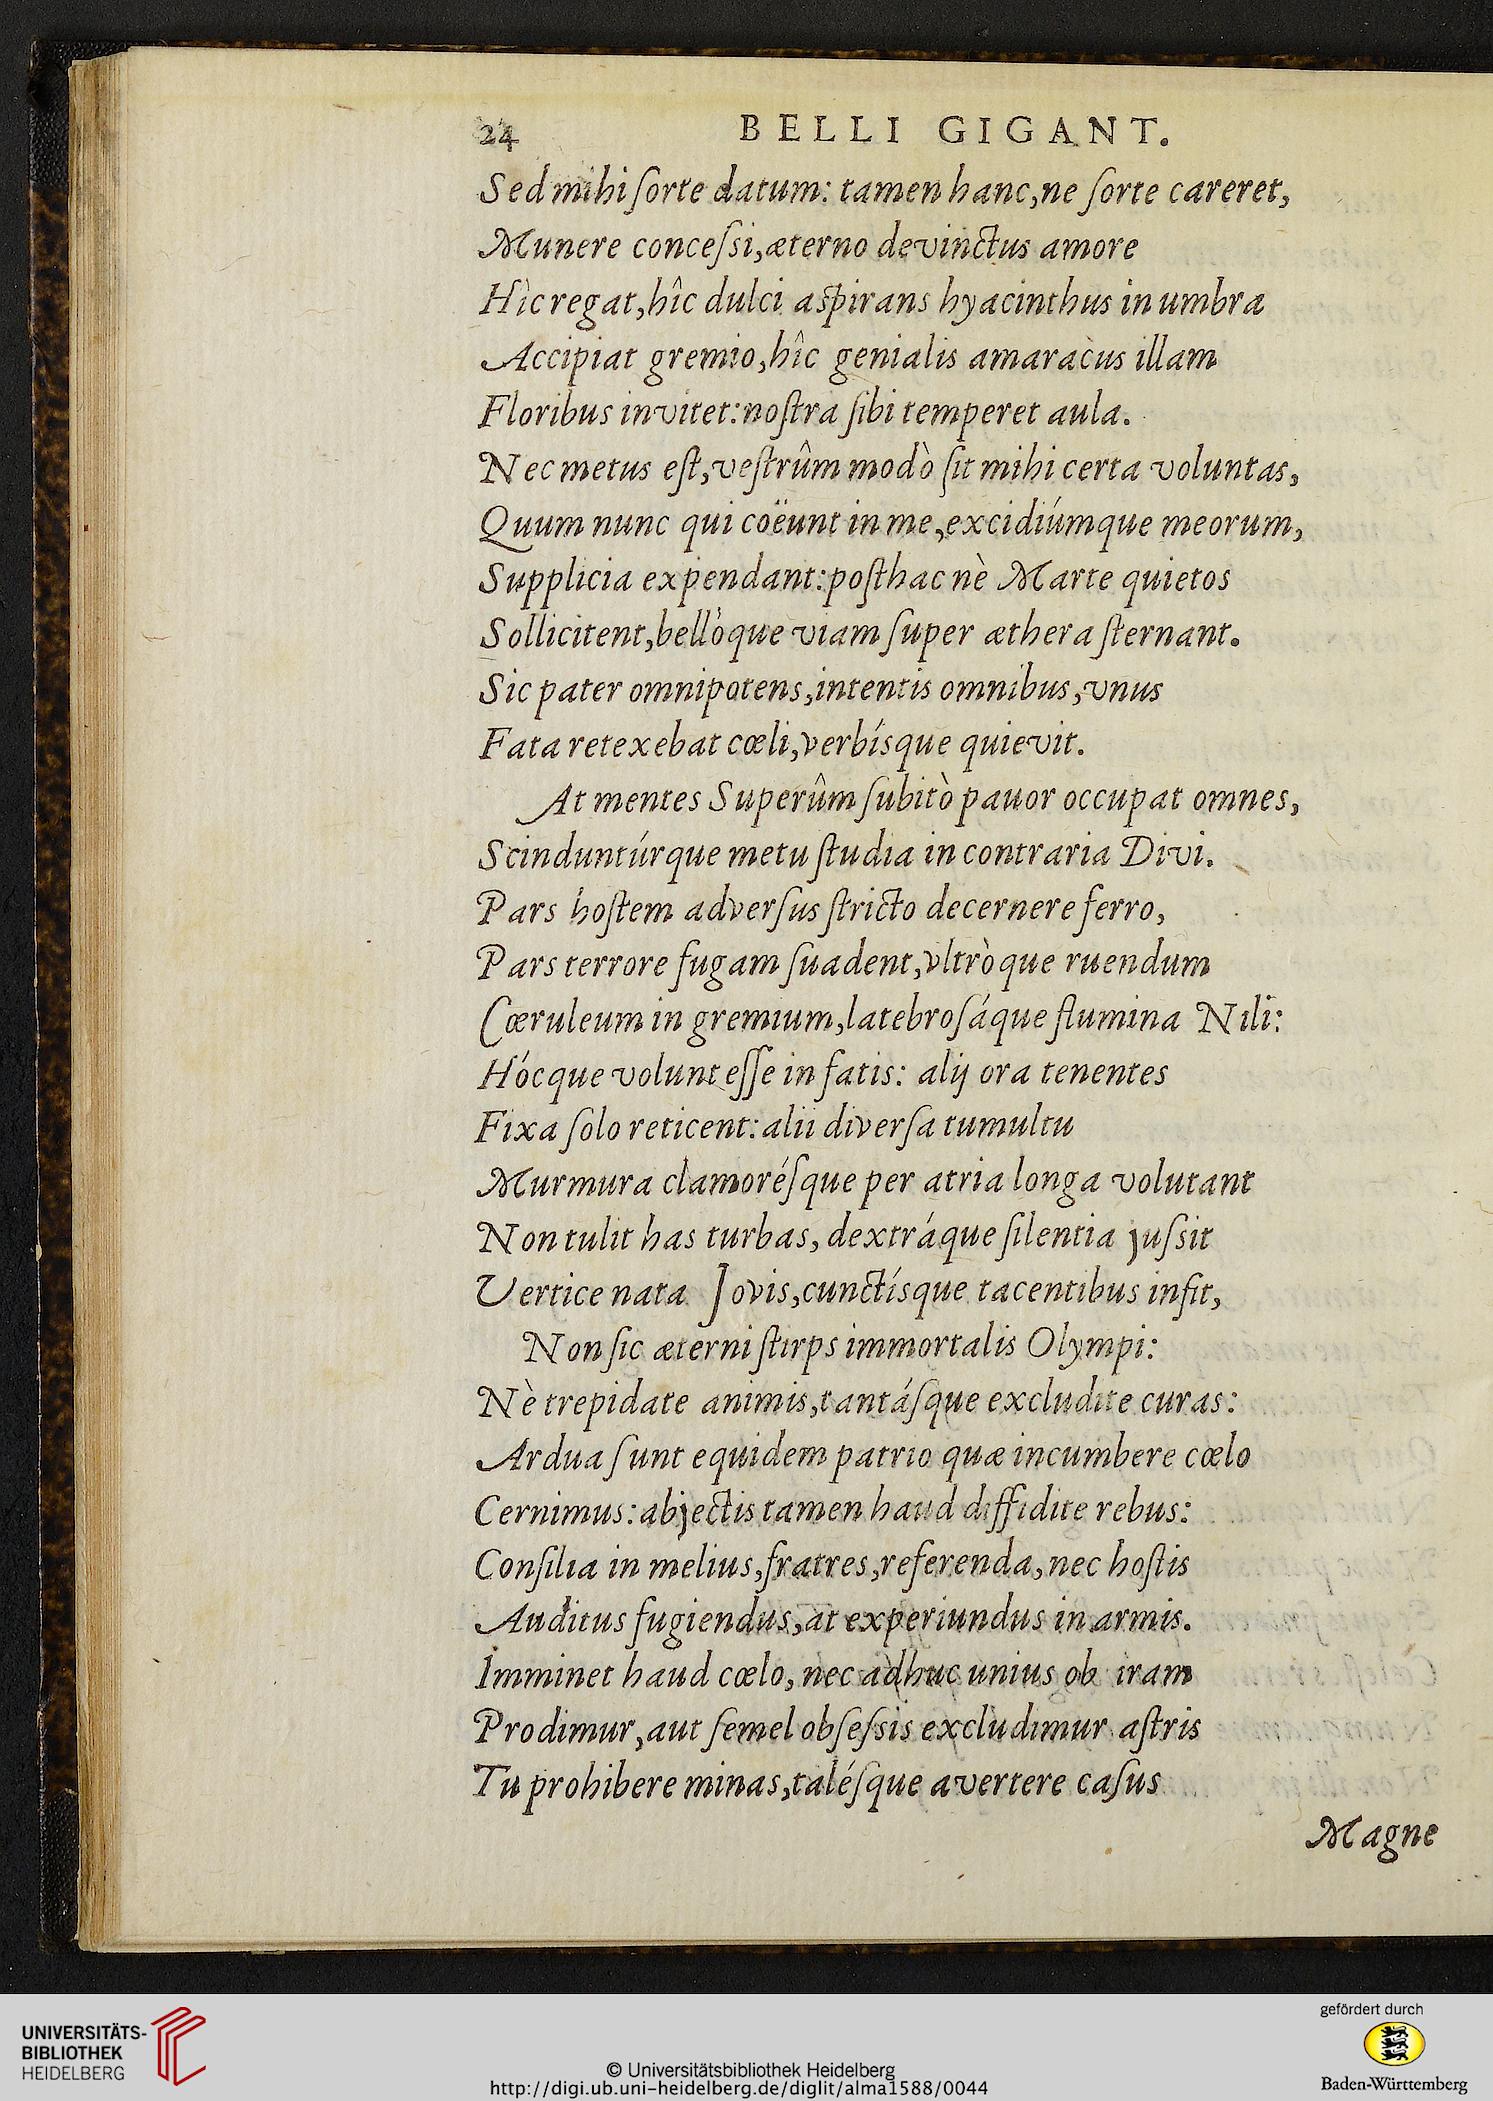 24 BELLI GIGANT.
Sed mihi ſorte datum: tamen hanc, ne ſorte careret,
Munere conceſsi, æterno devinctus amore
Hîc regat, hîc dulci aſpirans hyacinthus in umbra
Accipiat gremio, hîc genialis amaracus illam
Floribus invitet: noſtra ſibi temperet aula.
Nec metus eſt, veſtrûm modò ſit mihi certa voluntas,
Quum nunc qui coëunt in me, excidiúmque meorum,
Supplicia expendant: poſthac nè Marte quietos
Sollicitent, bellòque viam ſuper æthera ſternant.
Sic pater omnipotens, intentis omnibus, vnus
Fata retexebat cœli, verbísque quievit.
At mentes Superûm ſubitò pauor occupat omnes,
Scinduntúrque metu ſtudia in contraria Divi.
Pars hoſtem adverſus ſtricto decernere ferro,
Pars terrore fugam ſuadent, vltròque ruendum
Cœruleum in gremium, latebroſáque flumina Nili:
Hócque volunt eſſe in fatis: alij ora tenentes
Fixa ſolo reticent: alii diverſa tumultu
Murmura clamoréſque per atria longa volutant
Non tulit has turbas, dextráque ſilentia juſsit
Vertice nata Jovis, cunctísque tacentibus infit,
Non ſic æterni ſtirps immortalis Olympi:
Nè trepidate animis, tantáſque excludite curas:
Ardua ſunt equidem patrio quæ incumbere cœlo
Cernimus: abjectis tamen haud diffidite rebus:
Conſilia in melius, fratres, referenda, nec hoſtis
Auditus fugiendus, at experiundus in armis.
Imminet haud cœlo, nec adhuc unius ob iram
Prodimur, aut ſemel obſeſsis excludimur aſtris
Tu prohibere minas, taléſque avertere caſus
Magne
UNIVERSITÄTS-
BIBLIOTHEK
HEIDELBERG
© Universitätsbibliothek Heidelberg
http://digi.ub.uni-heidelberg.de/diglit/alma1588/0044
gefördert durch
Baden-Württemberg